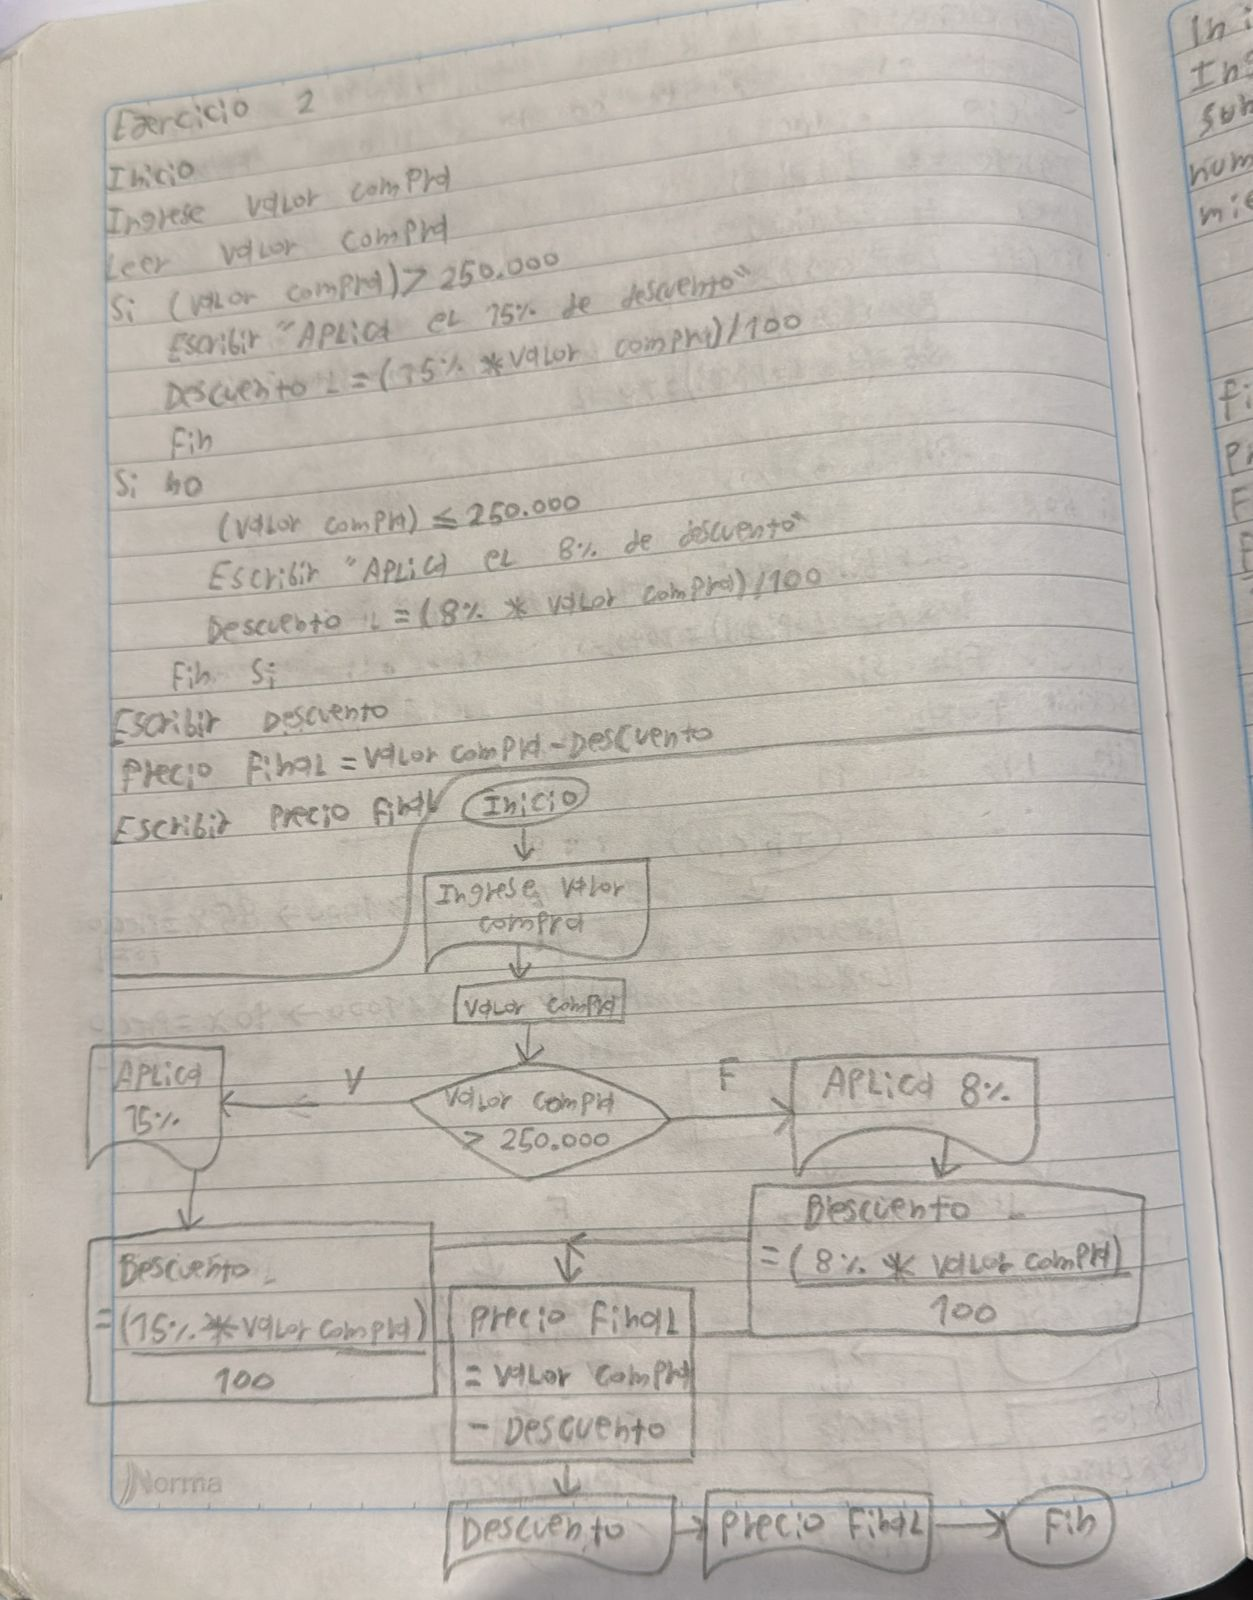 Ejercicio 2
Inicio
Ingrese valor compra
Leer valor compra
Si (valor compra) > 250.000
Escribir "Aplica el 15% de descuento"
Descuento = (15% * valor compra)/100
Fin
Si no
(valor compra) ≤ 250.000
Escribir "Aplica el 8% de descuento"
Descuento = (8% * valor compra)/100
Fin Si
Escribir Descuento
Precio Final = valor compra - Descuento
Escribir Precio Final
Inicio
Ingrese valor
compra
valor compra
valor compra
> 250.000
V
F
Aplica
15%
Aplica 8%
Descuento
= (15% * valor compra)
100
Descuento
= (8% * valor compra)
100
Precio Final
= valor compra
- Descuento
Descuento
Precio Final
Fin
Norma